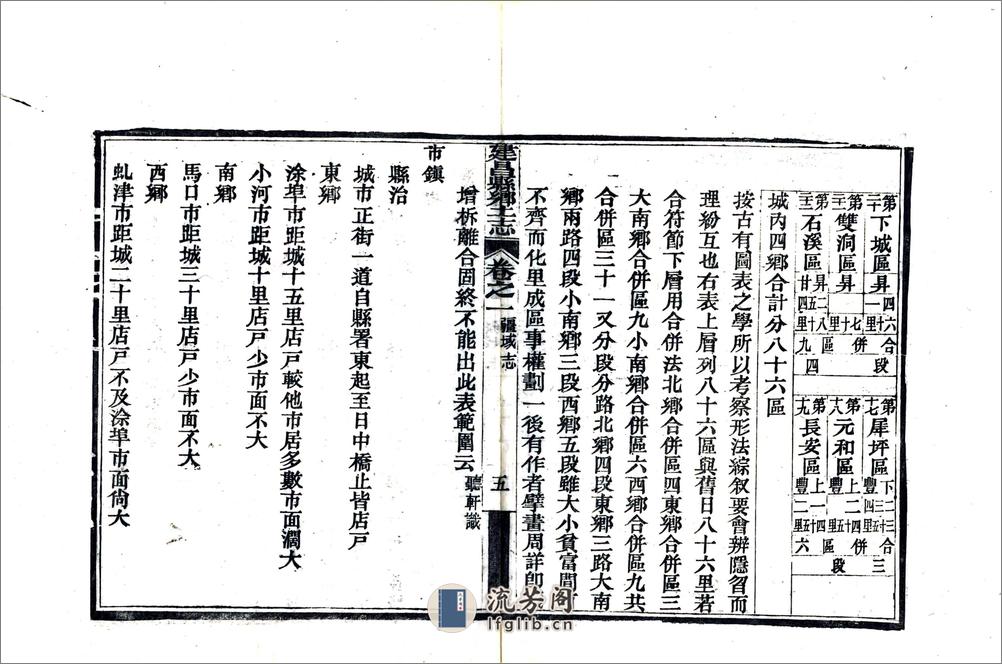 第二十下城區昇
四十一里
六合併區九
第二十一雙洞區昇
第二十二石溪區昇
段四
第十七犀坪區
第十八元和區豐
第十九長安區豐
合併區六
三段
城內四鄉合計分八十六區
按古有圖表之學所以考察形法綜叙要會辨隱曶而
理紛互也右表上層列八十六區與舊日八十六里若
合符節下層用合併法北鄉合併區四東鄉合併區三
大南鄉合併區九小南鄉合併區六西鄉合併區九共
合併區三十一又分段分路北鄉四段東鄉三路大南
鄉兩路四段小南鄉三段西鄉五段雖大小貧富間有
不齊而化里成區事權劃一後有作者擘畫周詳卽
增柝離合固終不能出此表範圍云聽軒識
建昌縣鄉土志 卷之一 疆域志 五
市鎮
縣治
城市正街一道自縣署東起至日中橋止皆店戶
東鄉
涂埠市距城十五里店戶較他市居多數市面濶大
小河市距城十里店戶少市面不大
南鄉
馬口市距城三十里店戶少市面不大
西鄉
虬津市距城二十里店戶不及涂埠市面尙大
流芳阁
lfglib.cn